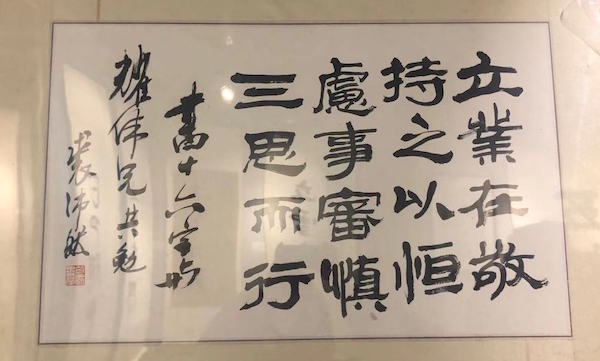 立業在敬
持之以恒
慮事審慎
三思而行
書十六字与
耀伟兄共勉
裘沛然